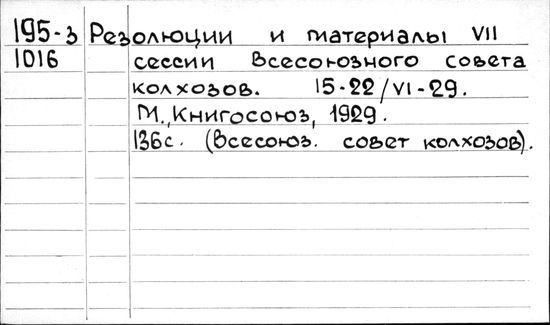 195-3 Резолюции и материалы VII
1016 сессии Всесоюзного совета
колхозов. 15-22/VI-29.
М., Книгосоюз, 1929.
136с. (Всесоюз. совет колхозов).